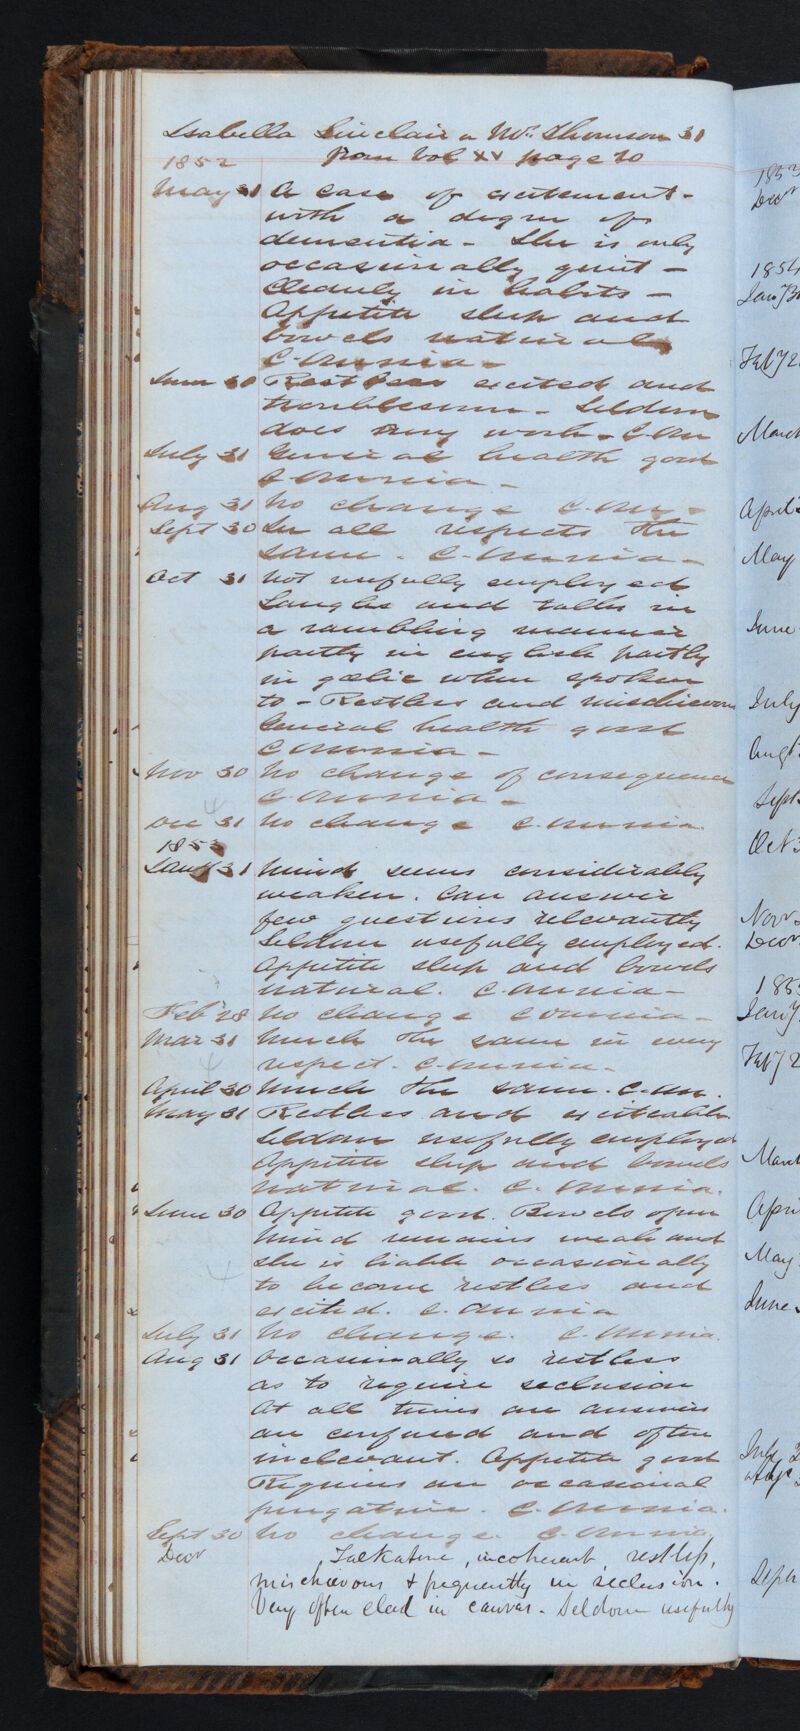 Isabella Sinclair or Mc Thomson 31
from Vol XV page 20
1852
May 31 A case of excitement -
with a degree of
dementia - She is only
occasionally quiet -
Cleanly in habits -
Appetite sleep and
bowels natural
C. omnia -
June 30 Restless excited and
troublesome - Seldom
does any work - C. Om
July 31 General health good
C omnia -
Aug 31 No change C. Om -
Sept 30 In all respects the
same - C. omnia -
Oct 31 Not usefully employed
Laughs and talks in
a rambling manner
partly in english partly
in gælic when spoken
to - Restless and mischievous
General health good
C omnia -
Nov 30 No change of consequence
C. omnia -
Dec 31 No change C. omnia
1853
Jany 31 Mind seems considerably
weaker. Can answer
few questions relevantly
Seldom usefully employed.
Appetite sleep and bowels
natural. C. omnia -
Feb 28 No change C omnia -
Mar 31 Much the same in every
respect. C. omnia -
April 30 Much the same. C. om.
May 31 Restless and exciteable
Seldom usefully employed
Appetite sleep and bowels
natural. C. omnia.
June 30 Appetite good. Bowels open
Mind remains weak and
she is liable occasionally
to become restless and
excited. C. omnia
July 31 No change. C. omnia.
Aug 31 Occasionally so restless
as to require seclusion
At all times her answers
are confused and often
irrelevant. Appetite good
Requires an occasional
purgative. C. omnia.
Sept 30 No change. C. omnia
Decr Talkative, incoherent, restless,
mischievous & frequently in seclusion.
Very often clad in canvas. Seldom usefully
1853
Decr
1854
Jany 3
Feby 2
March
April
May
June
July
Augt
Sept
Oct 3
Novr
Decr
185
Jany
Feby 2
March
Apri
May
June
July
Sept